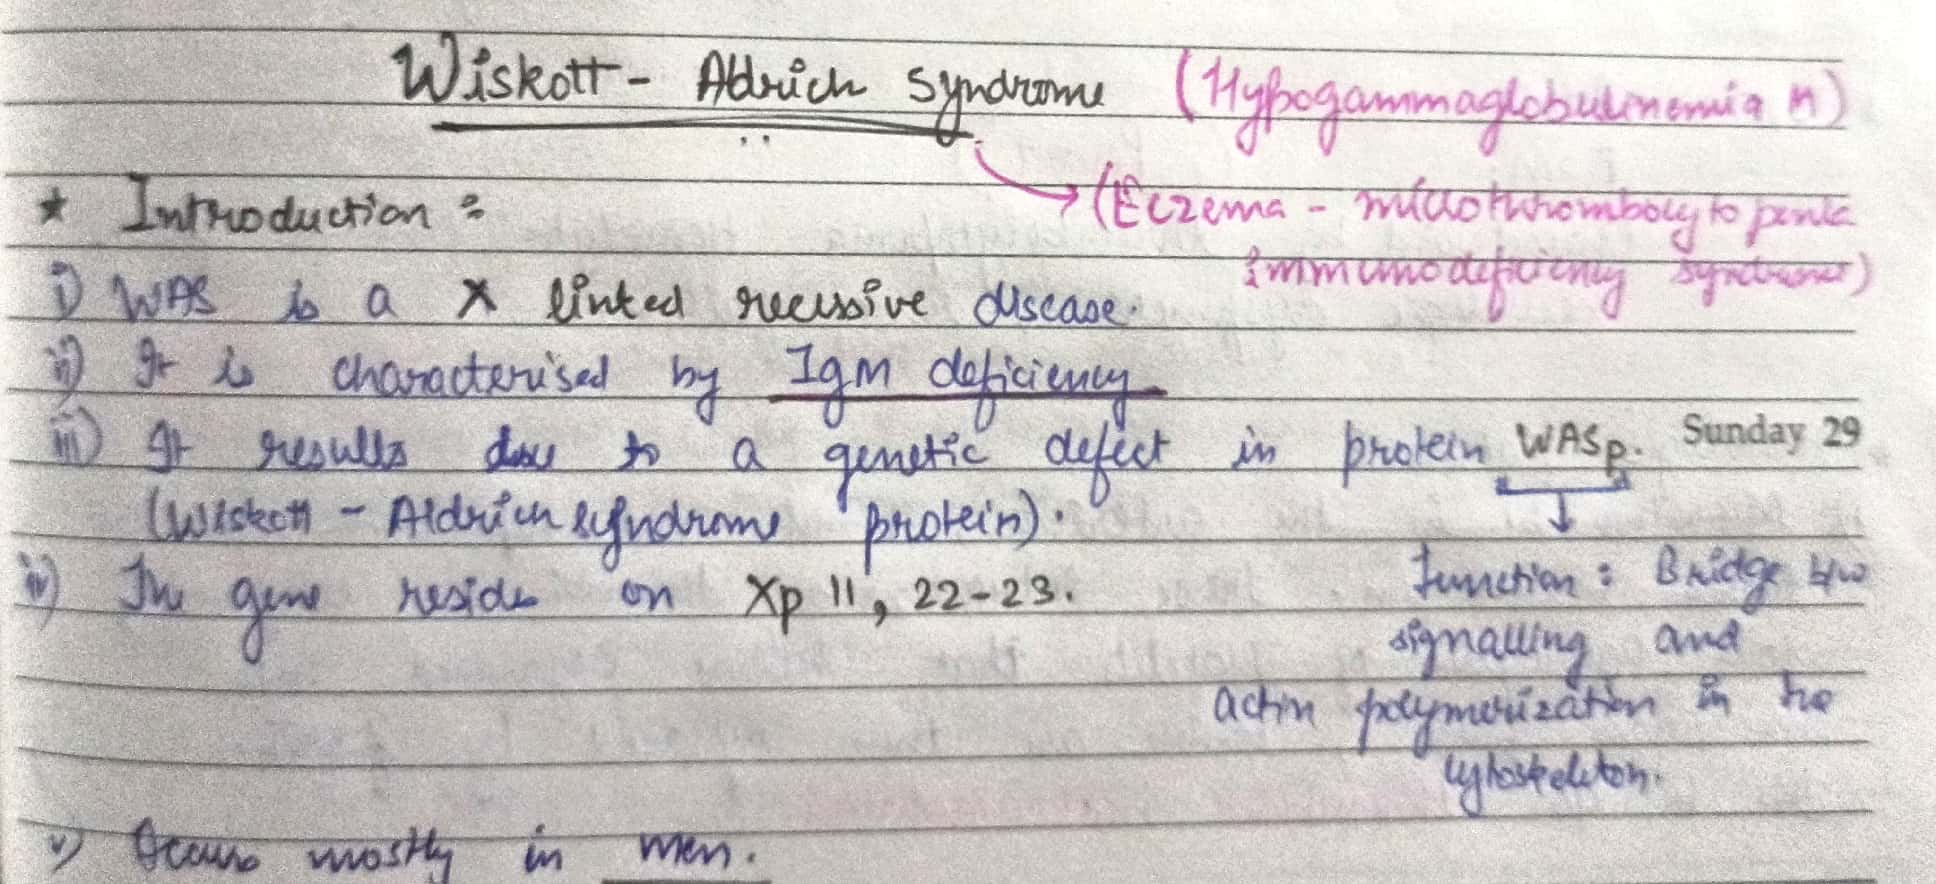 Wiskott - Aldrich Syndrome (Hypogammaglobulinemia M)
(Eczema - microthrombocytopenia
immunodeficiency syndrome)
★ Introduction :
i) WAS is a X linked recessive disease.
ii) It is characterised by IgM deficiency
iii) It results due to a genetic defect in protein WASp. Sunday 29
(Wiskott - Aldrich syndrome protein).
iv) The gene resides on Xp 11, 22-23.
Function : Bridge b/w
signalling and
actin polymerization in the
cytoskeleton.
v) Occurs mostly in men.